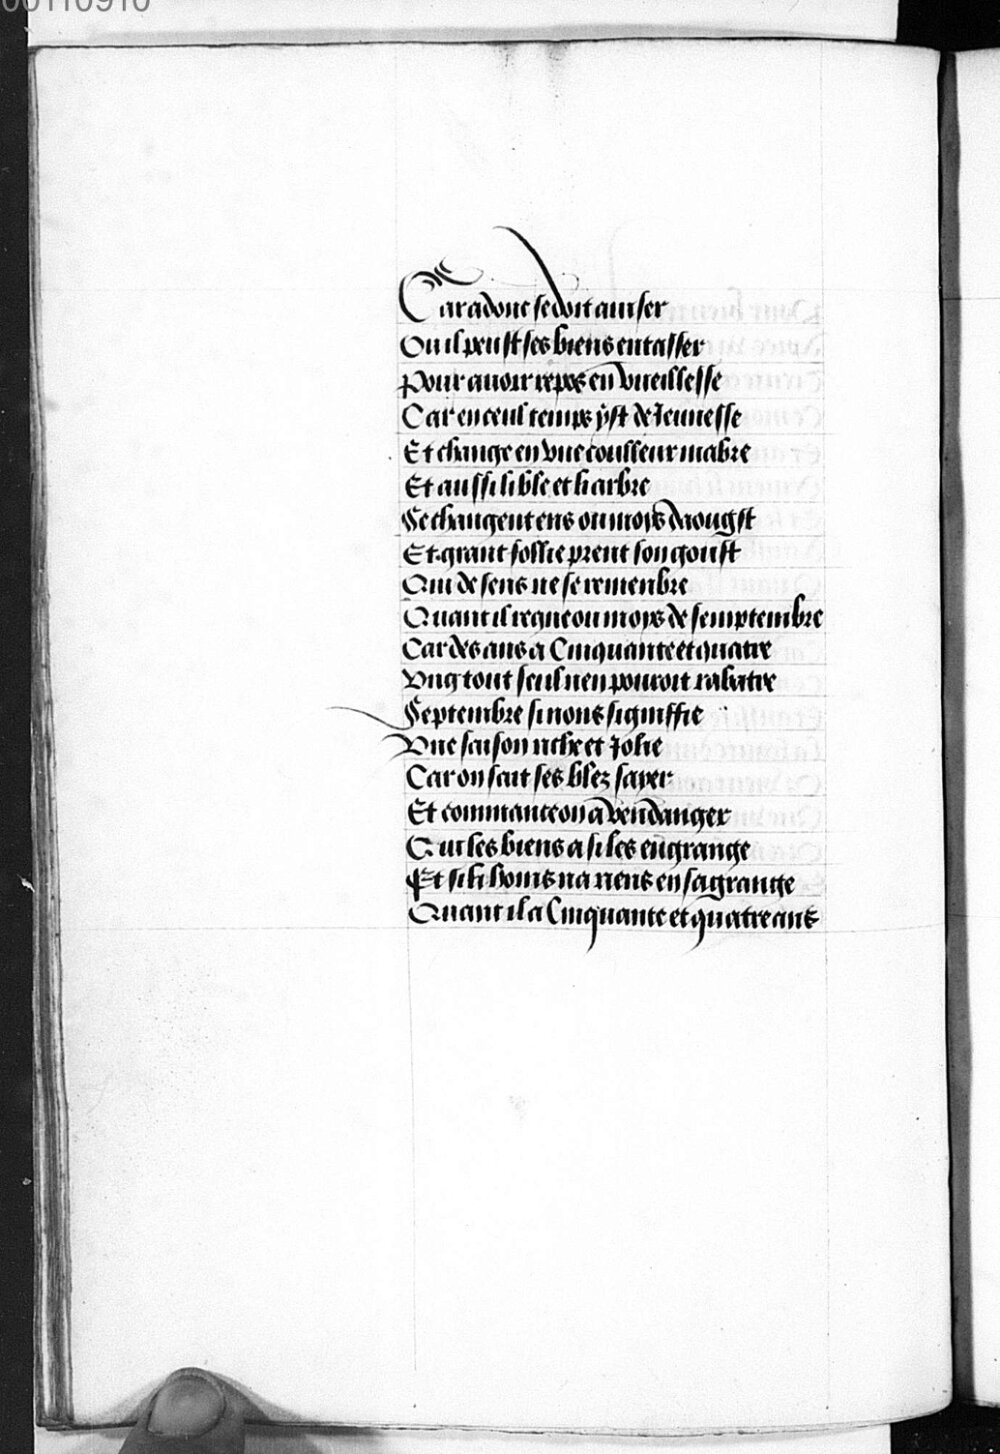 00110910
Car adonc se doit auiser
Ou il peust ses biens entasser
Pour auoir repos en vueillesse
Car en ceul temps yst de Jeunesse
Et change en vne coulleur mabre
Et aussi li ble et li arbre
Se changent ens ou moys daougst
Et grant follie prent son goust
Qui de sens ne se remenbre
Quant il regne ou moys de semptembre
Car des ans a Cinquante et quatre
Vng tout seul nen pouroit rabatre
Septembre si nous signiffie
Vne saison riche et Jolie
Car on fait ses blez sayer
Et commance on a vendanger
Qui les biens a si les engrange
Et se li homs na riens en sa grange
Quant il a Cinquante et quatre ans